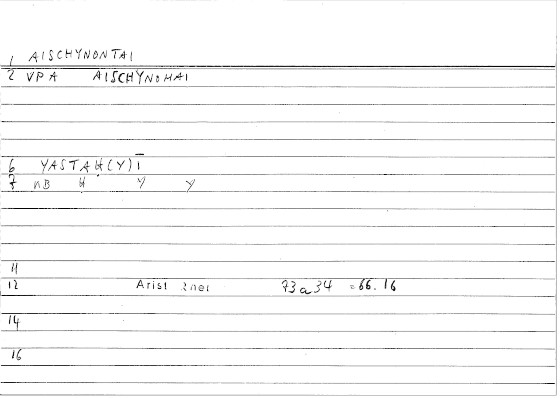 1 AISCHYNONTAI
2 VPA AISCHYNOMAI
6 YASTAḤ(Y)Ī
7 NB H Y Y
11
12 Arist 73a34 =66.16
14
16